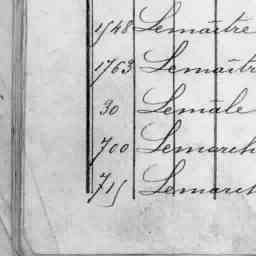 1548 Lemaître
1763 Lemaîtr
30 Lemâle
700 Lemarch
715 Lemarch